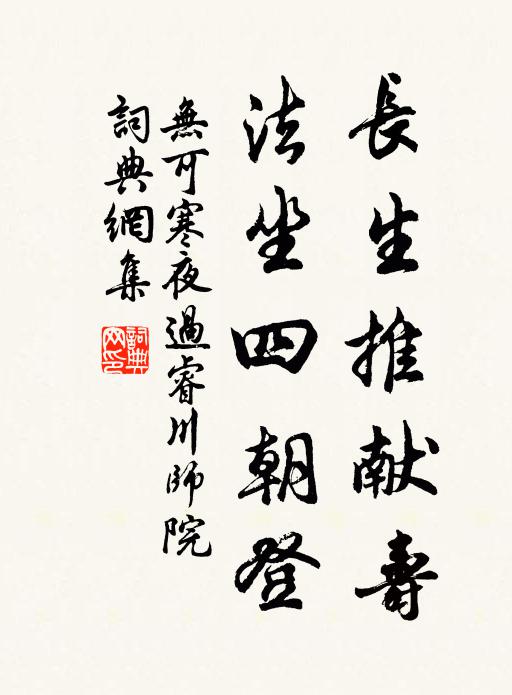 長生推献壽
法坐四朝登
無可寒夜過睿川師院
詞典網集
詞典
网印